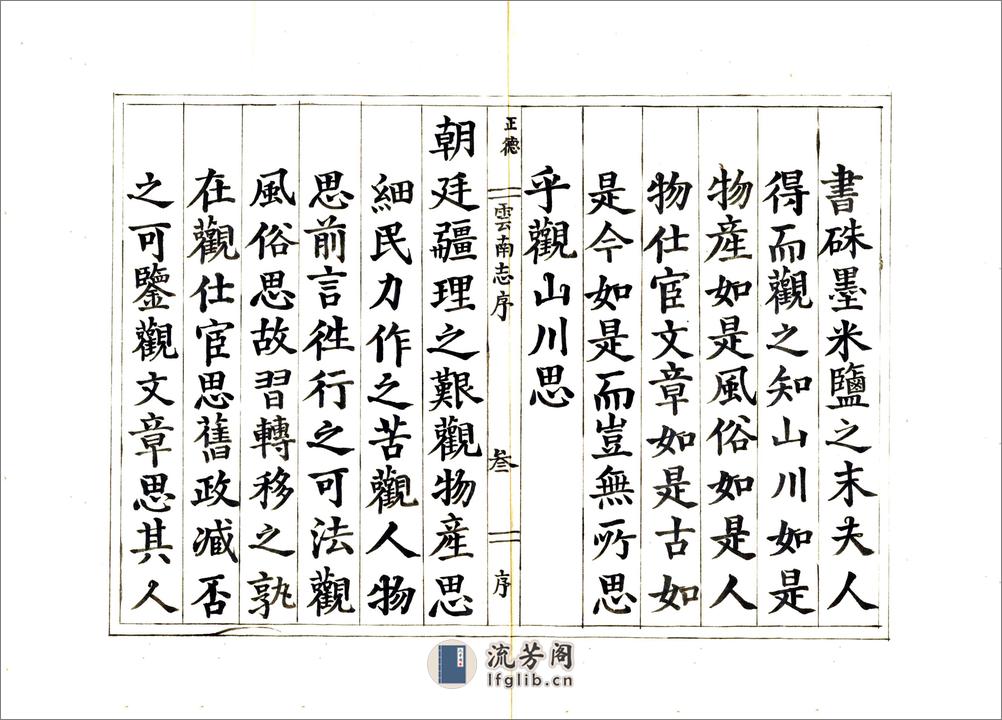 書硃墨米鹽之末夫人
得而觀之知山川如是
物產如是風俗如是人
物仕宦文章如是古如
是今如是而豈無所思
乎觀山川思
正德 雲南志序 叁 序
朝廷疆理之艱觀物產思
細民力作之苦觀人物
思前言徃行之可法觀
風俗思故習轉移之孰
在觀仕宦思舊政臧否
之可鑒觀文章思其人
流芳阁
lfglib.cn